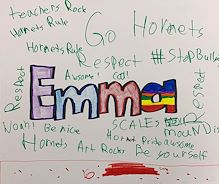 teachers Rock
Hornets Rule
Go Hornets
Hornets Rule
Respect
#StopBullying
Awsome!
Cool!
Respect
Emma
Respect
Woah!
Be nice
SCALES
Hornets
Art Rocks
Art
Pride
awesome
Be yourself